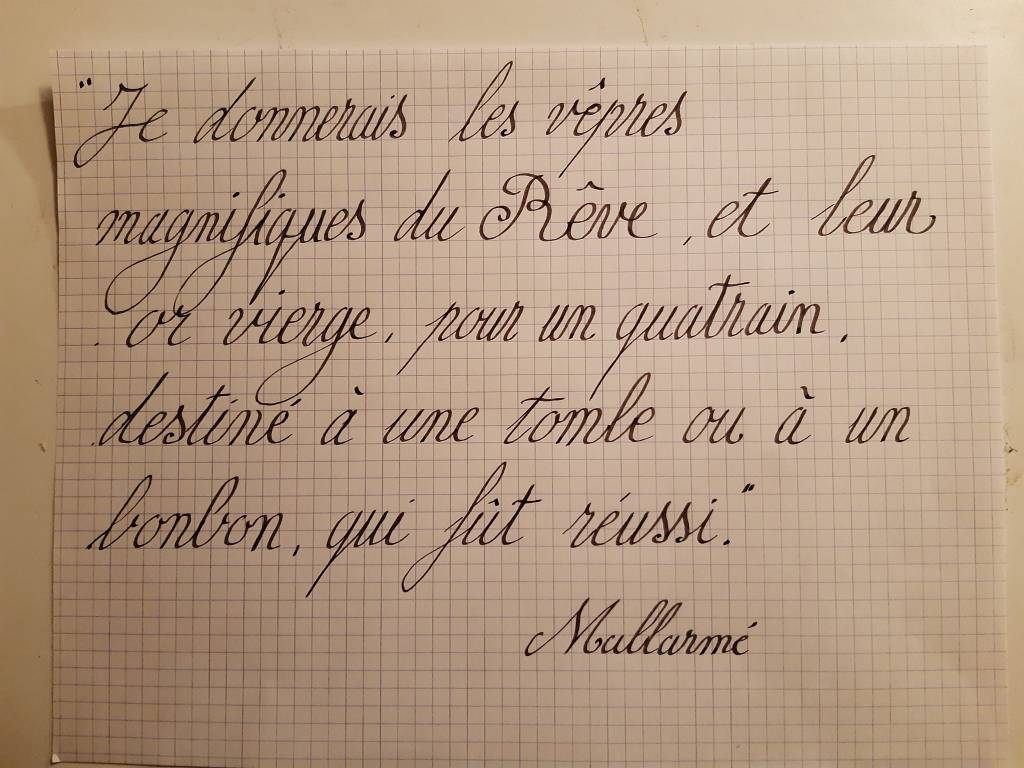 "Je donnerais les vêpres
magnifiques du Rêve, et leur
or vierge, pour un quatrain,
destiné à une tombe ou à un
bonbon, qui fût réussi."
Mallarmé